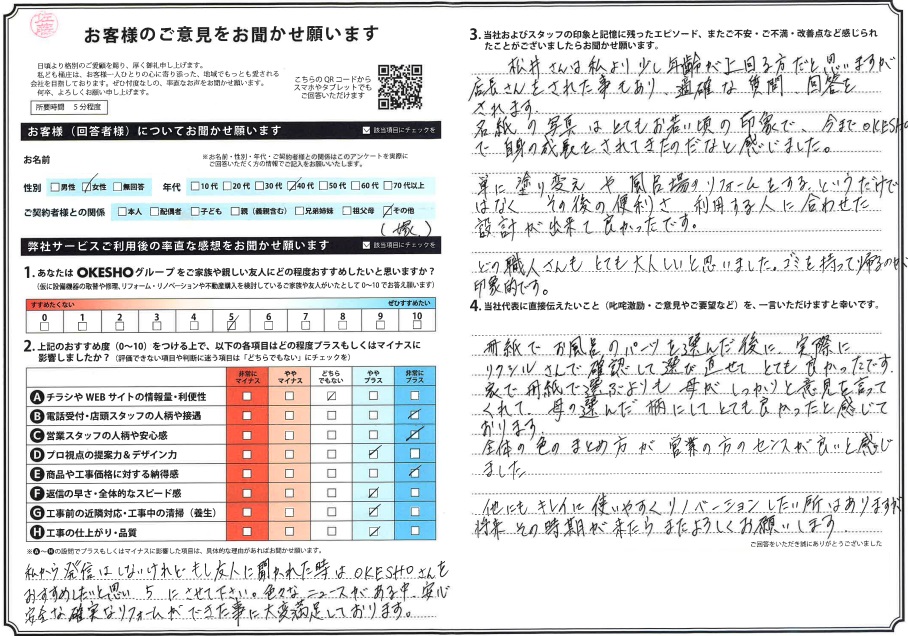 佐藤
お客様のご意見をお聞かせ願います
日頃より格別のご愛顧を賜り、厚く御礼申し上げます。
私ども桶庄は、お客様一人ひとりの心に寄り添った、地域でもっとも愛される
会社を目指しております。ぜひ忖度なしの、率直なお声をお聞かせ願います。
何卒、よろしくお願い申し上げます。
所要時間 5分程度
こちらのQRコードから
スマホやタブレットでも
ご回答いただけます
お客様（回答者様）についてお聞かせ願います
該当項目にチェックを
お名前
※お名前・性別・年代・ご契約者様との関係はこのアンケートを実際に
ご回答いただく方の情報でご記入をお願いいたします。
性別 男性 女性 無回答 年代 10代 20代 30代 40代 50代 60代 70代以上
ご契約者様との関係 本人 配偶者 子ども 親（義親含む） 兄弟姉妹 祖父母 その他
（嫁）
弊社サービスご利用後の率直な感想をお聞かせ願います
該当項目にチェックを
1. あなたは OKESHO グループをご家族や親しい友人にどの程度おすすめしたいと思いますか？
（仮に設備機器の取替や修理、リフォーム・リノベーションや不動産購入を検討しているご家族や友人がいたとして0～10でお答え願います）
すすめたくない ぜひすすめたい
0 1 2 3 4 5 6 7 8 9 10
2. 上記のおすすめ度（0～10）をつける上で、以下の各項目はどの程度プラスもしくはマイナスに
影響しましたか？（評価できない項目や判断に迷う項目は「どちらでもない」にチェックを）
非常に マイナス やや マイナス どちら でもない やや プラス 非常に プラス
A チラシや WEB サイトの情報量・利便性
B 電話受付・店頭スタッフの人柄や接遇
C 営業スタッフの人柄や安心感
D プロ視点の提案力＆デザイン力
E 商品や工事価格に対する納得感
F 返信の早さ・全体的なスピード感
G 工事前の近隣対応・工事中の清掃（養生）
H 工事の仕上がり・品質
※A～Hの設問でプラスもしくはマイナスに影響した項目は、具体的な理由があればお聞かせ願います。
私から発信はしないけれど もし友人に聞かれた時は OKESHOさんを
おすすめしたいと思い 5 にさせて下さい。色々なニュースがある中、安心
安全な確実なリフォームができた事に大変満足しております。
3. 当社およびスタッフの印象と記憶に残ったエピソード、またご不安・ご不満・改善点など感じられ
たことがございましたらお聞かせ願います。
松井さんは私より少し年齢が上回る方だと思いますが
店長さんをされた事もあり、適確な質問、回答を
されます。
名紙の写真はとてもお若い頃の印象で、今までOKESHO
で自身の成長をされてきたのだなと感じました。
単に塗り変えや風呂場のリフォームをする、というだけで
はなく その後の便利さ 利用する人に合わせた
設計が出来て良かったです。
どの職人さんも とても大人しいと思いました。ゴミを持って帰るのが
印象的です。
4. 当社代表に直接伝えたいこと（叱咤激励・ご意見やご要望など）を、一言いただけますと幸いです。
冊紙でお風呂のパーツを選んだ後に、実際に
リクシルさんで確認して選び直せてとても良かったです。
家で冊紙で選ぶよりも母がしっかりと意見を言って
くれて 母の選んだ柄にしてとても良かったと感じて
おります。
全体の色のまとめ方が営業の方のセンスが良いと感じ
ました
他にもキレイに使いやすくリノベーションしたい所はありますが
将来 その時期が来たら またよろしくお願いします。
ご回答をいただき誠にありがとうございました